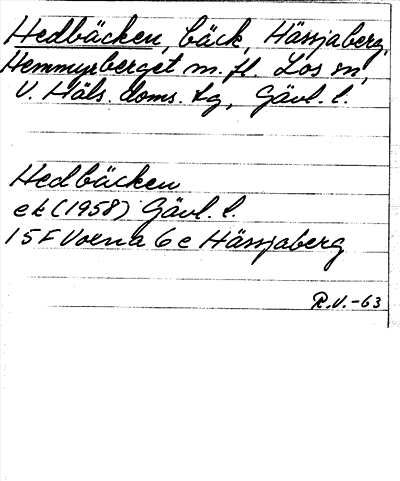 Hedbäcken, bäck, Hässjaberg,
Hemmyrberget m. fl. Los sn,
V. Häls. doms. tg, Gävl. l.
Hedbäcken
ek (1958) Gävl. l.
15F Voxna 6e Hässjaberg
R.V.-63